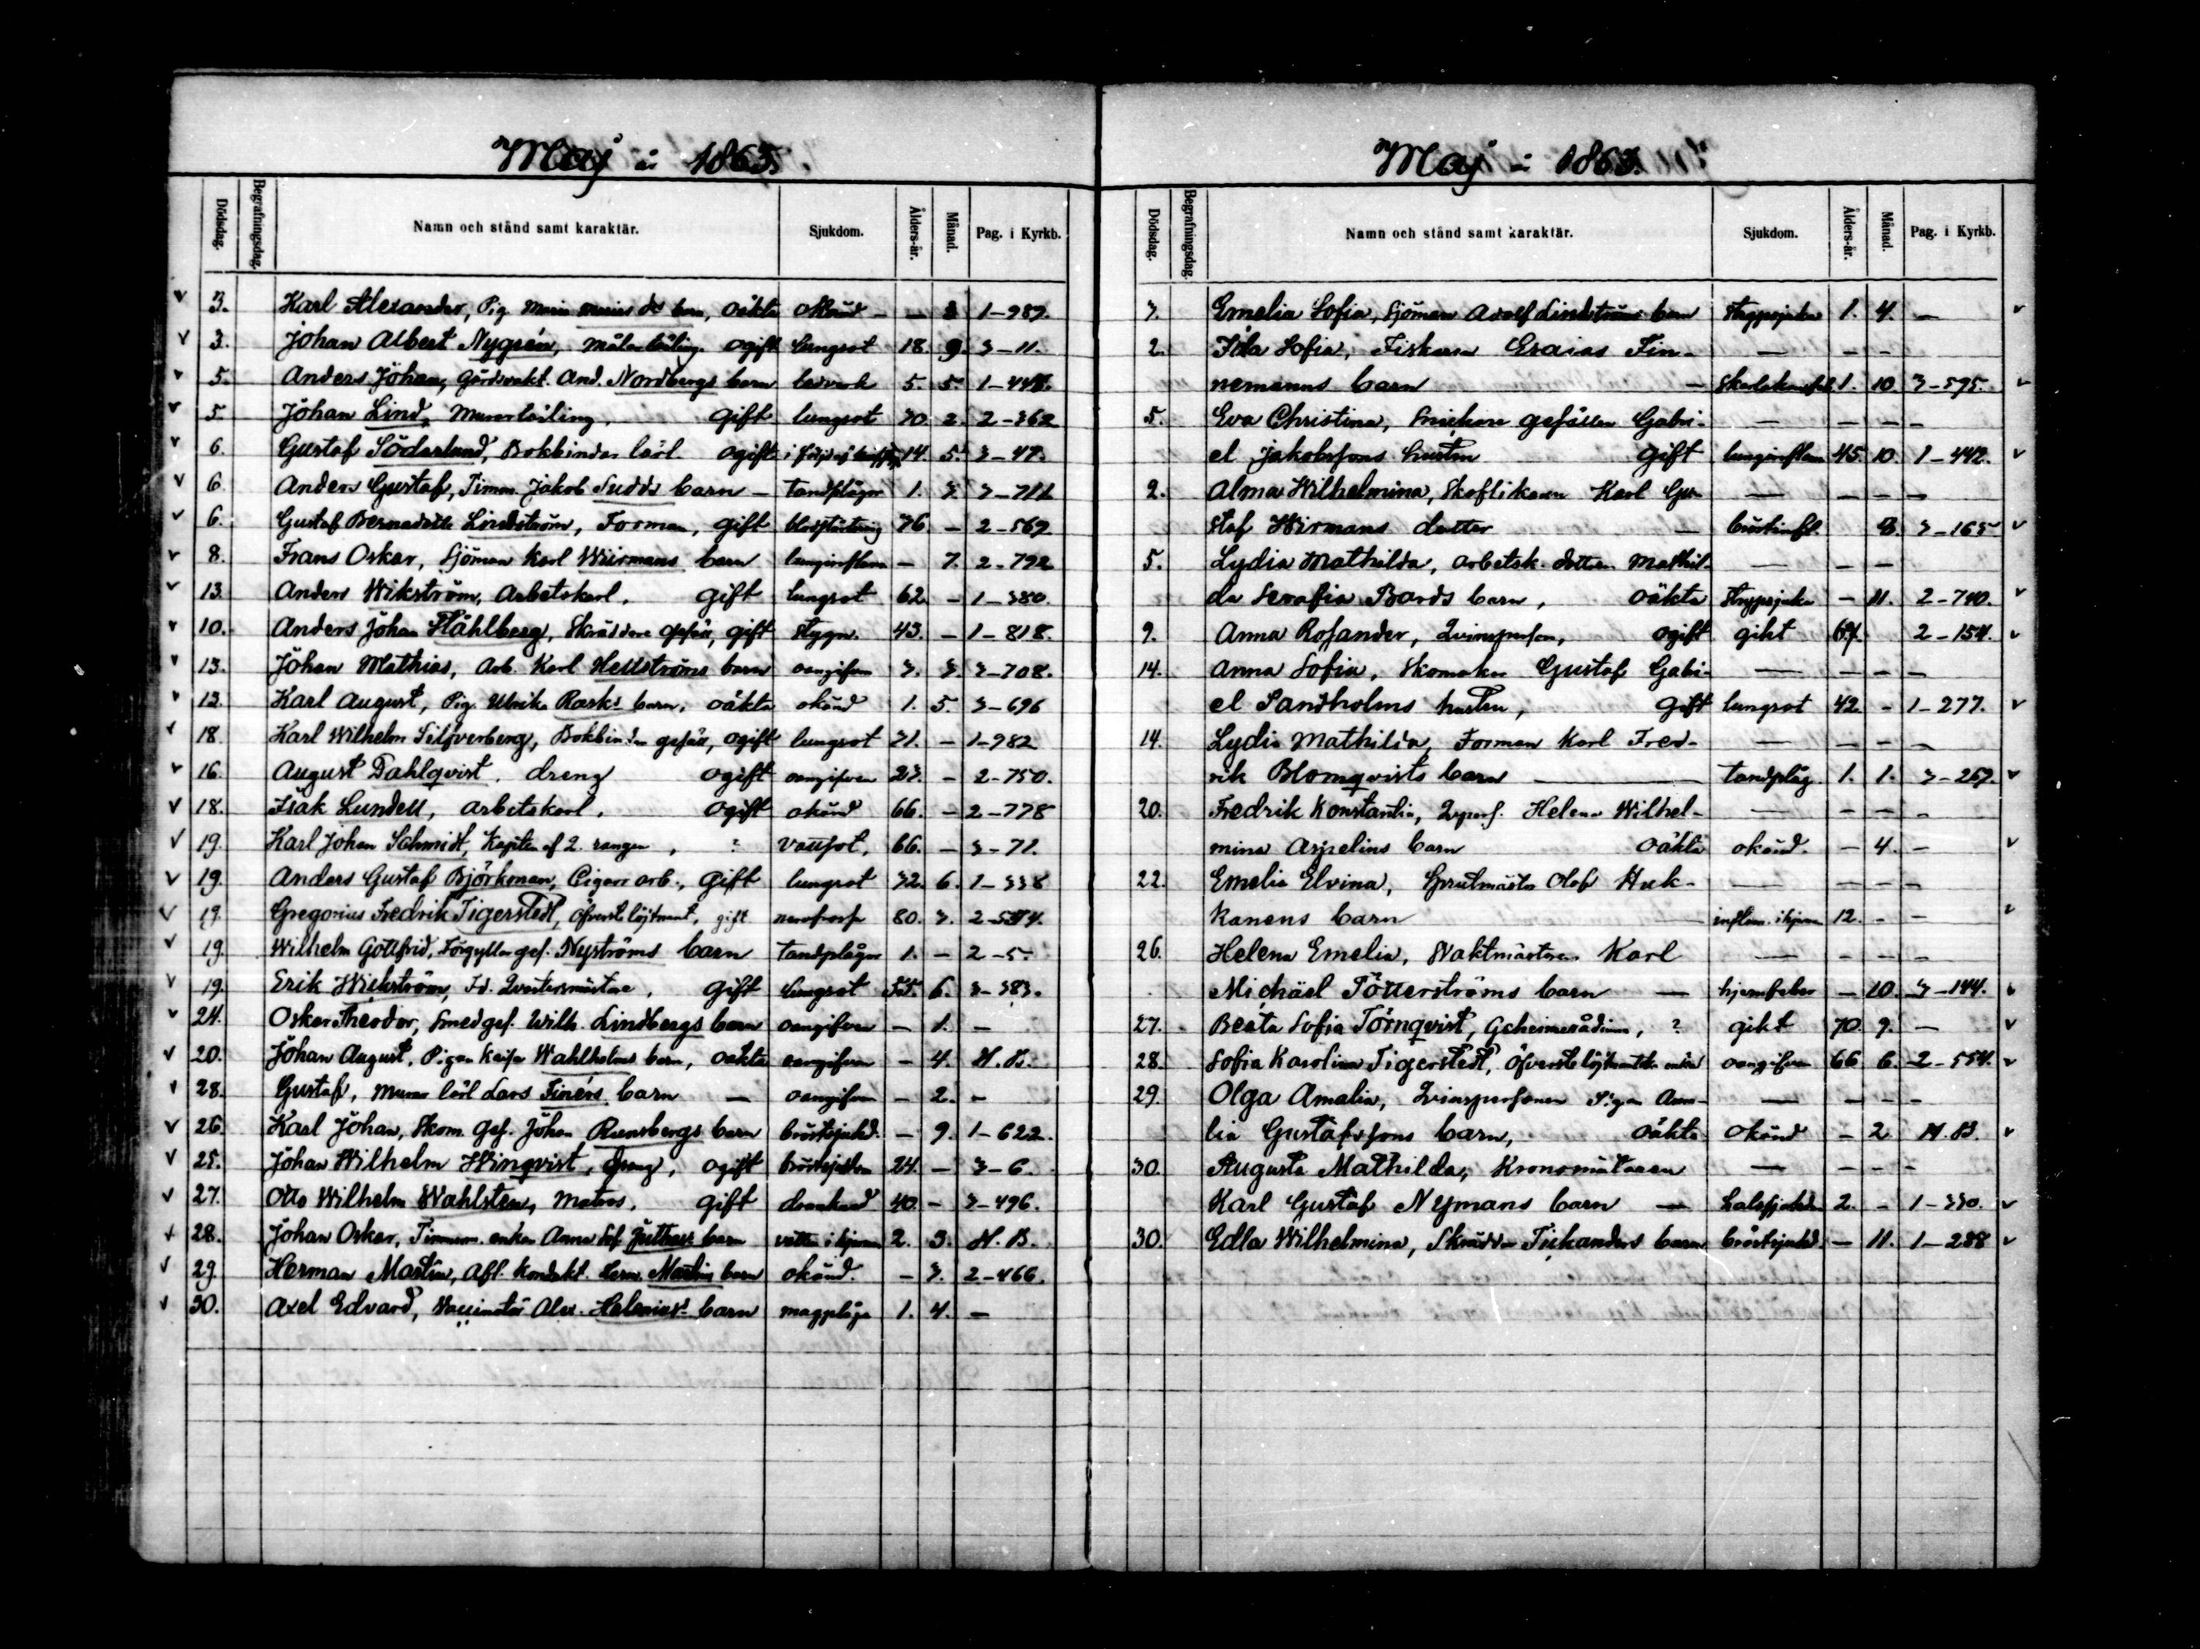 Maj å 1863.
Dödsdag. Begrafningsdag. Namn och stånd samt karaktär. Sjukdom. Ålders-år. Månad. Pag. i Kyrkb.
3. Karl Alexander, Pig. Maria barn, oäkta okänd — — 1-989.
3. Johan Albert Nygrén, målarlärling ogift lungsot 18. 9. 3-11.
5. Anders Johan, Gårdsvakt. And. Nordbergs barn ledverk 5. 5. 1-448.
5. Johan Lind, Murarlärling, gift lungsot 30. 2. 2-362
6. Gustaf Söderlund, Bokbindar lärl ogift i följd af 14. 5. 3-47.
6. Anders Gustaf, Timm. Jakob Sudds barn — tandplågor 1. 3. 3-711
6. Gustaf Bernadotte Lindström, Forman, gift blodstörtning 36. — 2-569
8. Frans Oskar, Sjöman Karl Wiirmans barn lunginflam — 7. 2-792
13. Anders Wikström, Arbetskarl, gift lungsot 62. — 1-380.
10. Anders Johan Ståhlberg, Skräddare gesäll, gift stygn. 43. — 1-818.
13. Johan Mathias, Arb. Karl Hellströms barn oangifven 3. 3. 3-708.
13. Karl August, Pig. Ulrika Rasks barn, oäkta okänd 1. 5. 3-696
18. Karl Wilhelm Silfverberg, Bokbindar gesäll, ogift lungsot 31. — 1-982
16. August Dahlqvist, dreng ogift oangifven 23. — 2-750.
18. Isak Lundell, arbetskarl, ogift okänd 66. — 2-778
19. Karl Johan Schmidt, Kapiten af 2. rangen, ? vattsot, 66. — 3-71.
19. Anders Gustaf Björkman, Cigarr arb., gift lungsot 32. 6. 1-338
19. Gregorius Fredrik Tigerstedt, Öfverste löjtnant, gift 80. 3. 2-554.
19. Wilhelm Gottfrid, Förgyllar ges. Nyströms barn tandplågor 1. — 2-5.
19. Erik Wickström, Fd. Qvartersmästare, gift lungsot 55. 6. 3-383.
24. Oskar Theodor, Smedges. Wilh. Lindbergs barn oangifven — 1. —
20. Johan August, Pigan Kajsa Wahlholms barn, oäkta oangifven — 4. N. B.
28. Gustaf, Murar lärl Lars Finérs barn — oangifven — 2. —
26. Karl Johan, Skom. ges. Johan Runsbergs barn bröstsjukd. — 9. 1-622.
25. Johan Wilhelm Winqvist, dreng, ogift bröstsjukdom 24. — 3-6.
27. Otto Wilhelm Wahlsten, Matros, gift drunknad 40. — 3-496.
28. Johan Oskar, Timmerm. enkan Anna Sof barn vatten i hjernan 2. 3. N. B.
29. Herman Martin, Afl. kondukt. Herm. Martins barn okänd. — 3. 2-466.
30. Axel Edvard, Alex. Helenius barn magplåga 1. 4. —
Maj å 1863.
Dödsdag. Begrafningsdag. Namn och stånd samt karaktär. Sjukdom. Ålders-år. Månad. Pag. i Kyrkb.
3. Emelia Sofia, Sjöman Adolf Lindströms barn strypsjuka 1. 4. —
2. Ida Sofia, Fiskaren Eraias Fin- — — —
nemanns barn — Skarlakansfeb 1. 10. 3-595.
5. Eva Christina, Snickare gesällen Gabri- — — — —
el Jakobssons hustru gift lunginflam 45. 10. 1-442.
2. Alma Wilhelmina, Skoflikaren Karl Gu- — — — —
staf Wirmans dotter — bröstinfl. 8. 3-165
5. Lydia Mathilda, arbetsk. dottren Mathil- — — —
da Serafia Bards barn, oäkta strypsjuka — 11. 2-740.
9. Anna Rosander, Qvinsperson, ogift gikt 67. 2-154.
14. Anna Sofia, Skomakar Gustaf Gabri- — — — —
el Sandholms hustru, gift lungsot 42. — 1-277.
14. Lydia Mathilda, Forman Karl Fred- — — — —
rik Blomqvists barn — tandplåg. 1. 1. 3-269.
20. Fredrik Konstantin, Qvpers. Helena Wilhel- — — — —
mina Aspelins barn oäkta okänd. — 4. —
22. Emelia Elvina, Sprutmästar Olof Huk- — — — —
kanens barn — inflam. i hjernan 12. — —
26. Helena Emelia, Vaktmästaren Karl — — — —
Michäel Tötterströms barn — hjernfeber — 10. 3-144.
27. Beata Sofia Törnqvist, Geheimerådinna, ? gikt 70. 9. —
28. Sofia Karolina Tigerstedt, Öfverstelöjtnants enka oangifven 66. 6. 2-554.
29. Olga Amalia, Qvinspersonen Pigan Ama- — — — —
lia Gustafssons barn, oäkta okänd — 2. N. B.
30. Augusta Mathilda, Kronomätaren — — — —
Karl Gustaf Nymans barn — halssjukdom 2. — 1-330.
30. Edla Wilhelmina, Skräddar Tickanders barn bröstsjukd. — 11. 1-288